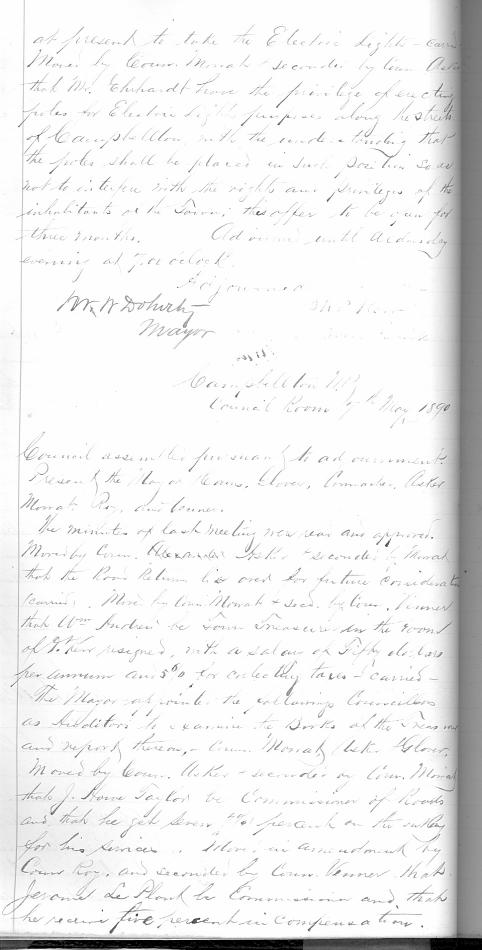 at present to take the Electric Lights - carried
Moved by Coun. Mowat & seconded by Coun Asker
that Mr. Ehrhardt have the privilege of erecting
poles for Electric Light purposes along the streets
of Campbellton, with the understanding that
the poles shall be placed in such position so as
not to interfere with the rights and privileges of the
inhabitants of the Town; this offer to be open for
three months. Adjourned until Wednesday
evening at 7 o'clock.
Adjourned
Wm W Doherty
Mayor
Campbellton NB
Council Room 7th May 1890
Council assembled pursuant to adjournment.
Present the Mayor Couns. Glover, Asker
Mowat, Roy, and Venner.
The minutes of last meeting were read and approved.
Moved by Coun. Asker & seconded by Mowat
that the Road Return lie over for future consideration
carried. Moved by Coun Mowat & secd. by Coun. Venner
that Wm Andrew be Town Treasurer in the room
of J. Kerr resigned, with a salary of Fifty dollars
per annum and 5% for collecting taxes - carried -
The Mayor appointed the following Councillors
as Auditors to examine the Books of the Treasurer
and report thereon, - Coun. Mowat, Asker & Glover,
Moved by Coun. Asker & seconded by Coun. Mowat
that J. Howe Taylor be Commissioner of Roads
and that he get Seven percent on the outlay
for his services. Moved in amendment by
Coun Roy, and seconded by Coun. Venner, that
Jerome La Plant be Commissioner and that
he receive five percent in compensation.